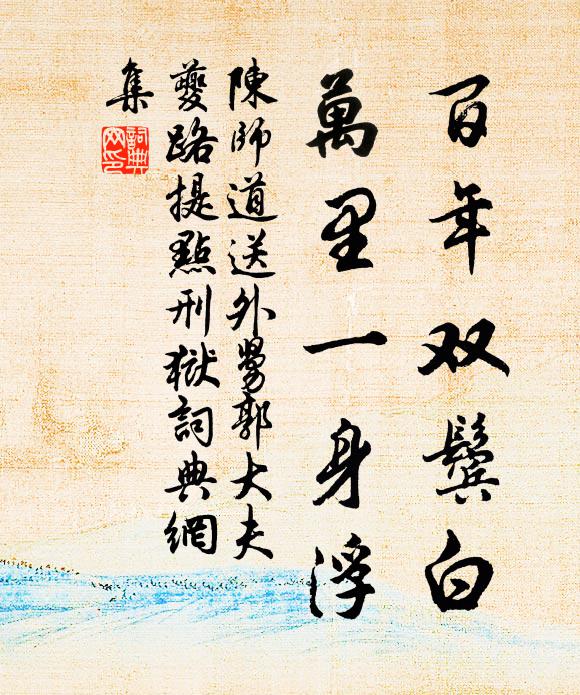 百年双鬓白
萬里一身浮
陳師道送外舅郭大夫
夔路提點刑獄詞典網
集
詞典
网印